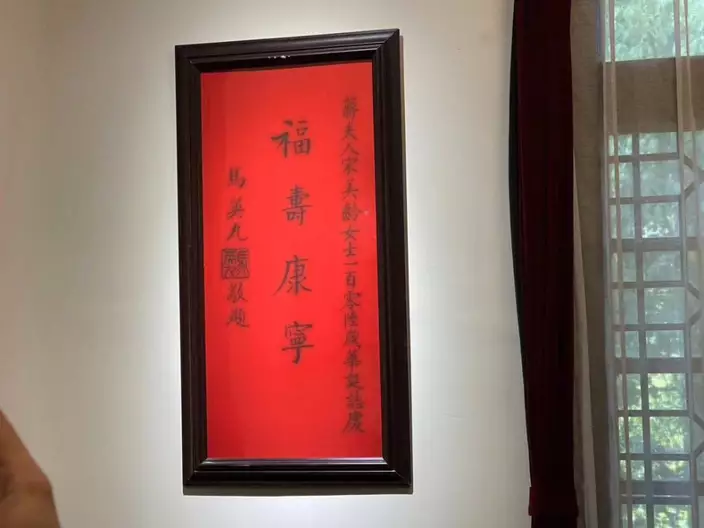 蔣夫人宋美齡女士一百零陸歲華誕誌慶
福壽康寧
馬英九 敬題